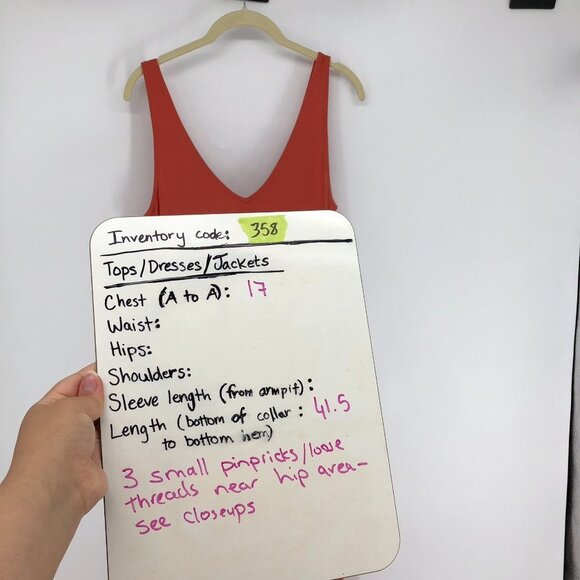 Inventory code: 358
Tops/Dresses/Jackets
Chest (A to A): 17
Waist:
Hips:
Shoulders:
Sleeve length (from armpit):
Length (bottom of collar : 41.5
to bottom hem)
3 small pinpricks/loose
threads near hip area-
see closeups